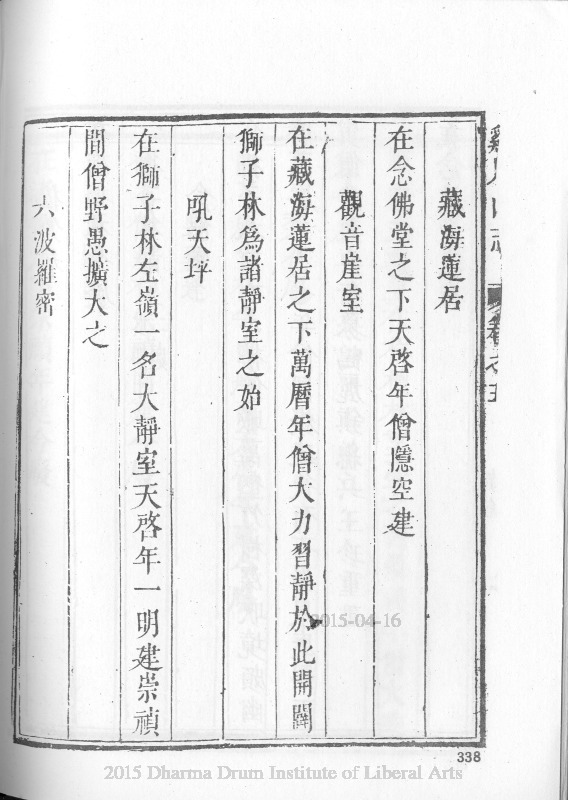 雞足山志 卷之五
藏海蓮居
在念佛堂之下天啓年僧隱空建
觀音崖室
在藏海蓮居之下萬曆年僧大力習靜於此開闢
獅子林爲諸靜室之始
吼天坪
在獅子林左嶺一名大靜室天啓年一明建崇禎
間僧野愚擴大之
六波羅密
338
2015-04-16
2015 Dharma Drum Institute of Liberal Arts